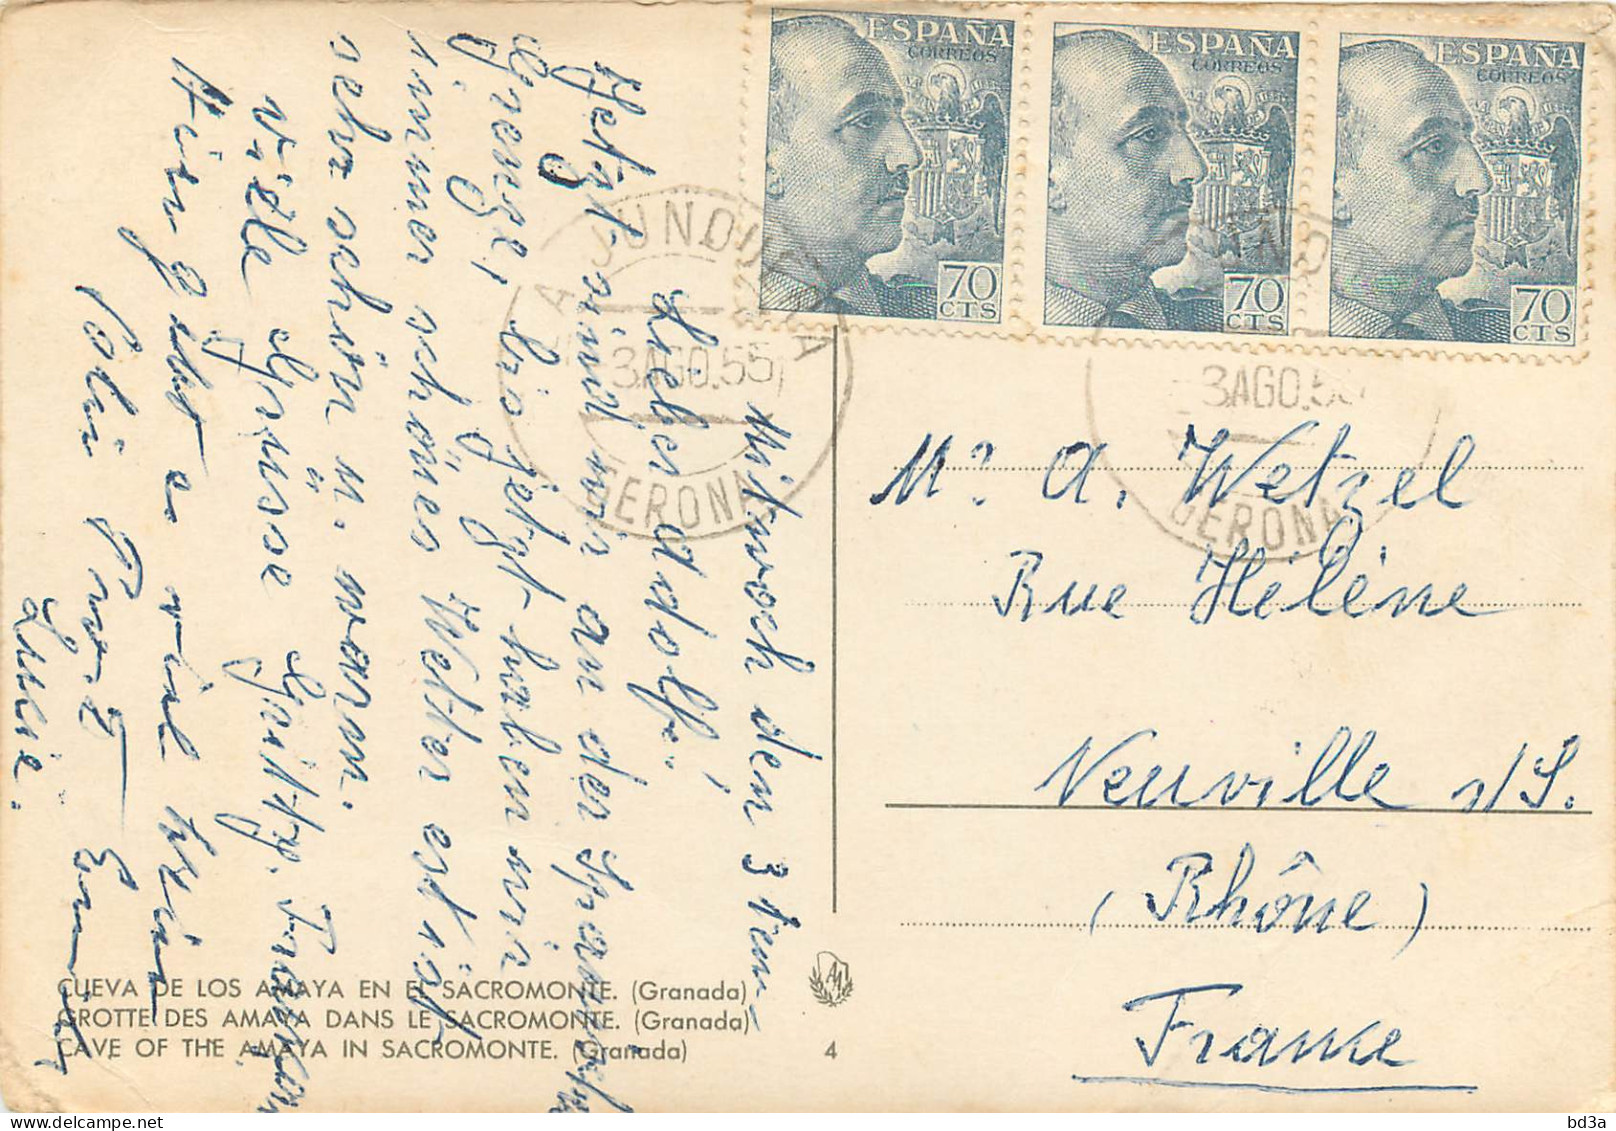 ESPAÑA
CORREOS
70
CTS
ESPAÑA
CORREOS
70
CTS
ESPAÑA
CORREOS
70
CTS
LA JUNQUERA
3 AGO.55
GERONA
3 AGO.55
GERONA
Mitwoch den 3ten
Lieber Adolf.
Jetzt sind wir an der Spanisch
Grenze, bis jetzt haben wir
immer schönes Wetter es ist
sehr schön u. warm.
Viele Grüsse
Hier gibt es viel
Lucie.
Mr. A. Wetzel
Rue Hélène
Neuville s/S.
(Rhône)
France
CUEVA DE LOS AMAYA EN EL SACROMONTE. (Granada)
GROTTE DES AMAYA DANS LE SACROMONTE. (Granada)
CAVE OF THE AMAYA IN SACROMONTE. (Granada)
4
bd3a